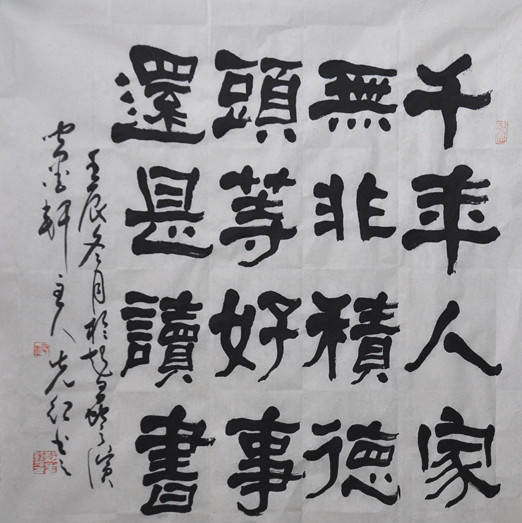 千年人家
無非積德
頭等好事
還是讀書
壬辰冬月於之濱
軒主人